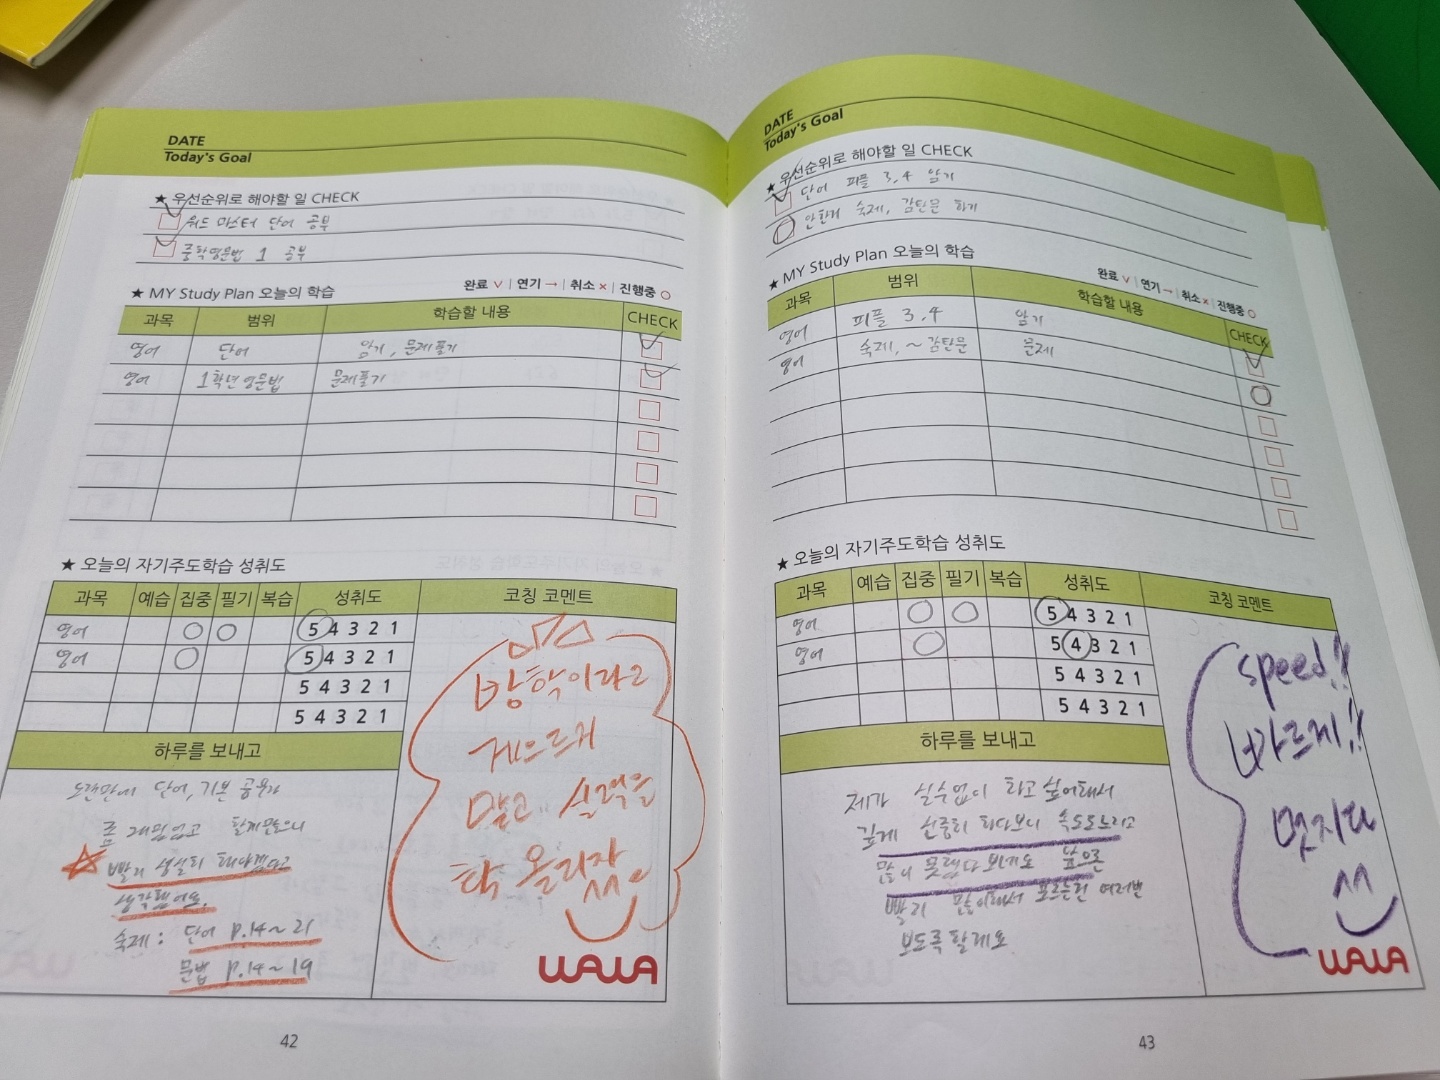 DATE
Today's Goal
★ 우선순위로 해야할 일 CHECK
워드 마스터 단어 공부
중학영문법 1 공부
★ MY Study Plan 오늘의 학습
완료 ∨ | 연기 → | 취소 × | 진행중 ○
과목 범위 학습할 내용 CHECK
영어 단어 암기, 문제풀기
영어 1학년 영문법 문제풀기
★ 오늘의 자기주도학습 성취도
과목 예습 집중 필기 복습 성취도 코칭 코멘트
영어 ○ ○ 5 4 3 2 1
영어 ○ 5 4 3 2 1
5 4 3 2 1
5 4 3 2 1
방학이라고
게으르지
말고 실력을
확 올리장^^
하루를 보내고
오랜만에 단어, 기본 공부가
좀 재밌었고
빨리 성실히 해야겠다고
생각했어요.
숙제 : 단어 p.14~21
문법 p.14~19
WAWA
42
DATE
Today's Goal
★ 우선순위로 해야할 일 CHECK
단어 피플 3,4 암기
숙제, 감탄문 하기
★ MY Study Plan 오늘의 학습
완료 ∨ | 연기 → | 취소 × | 진행중 ○
과목 범위 학습할 내용 CHECK
영어 피플 3,4 암기
영어 숙제, ~감탄문 문제
★ 오늘의 자기주도학습 성취도
과목 예습 집중 필기 복습 성취도 코칭 코멘트
영어 ○ ○ 5 4 3 2 1
영어 ○ 5 4 3 2 1
5 4 3 2 1
5 4 3 2 1
speed!!
바르게!!
멋지다
^^
하루를 보내고
제가 실수없이 하고 싶어해서
깊게 신중히 하다보니 속도도 느리고
많이 못했다 보네요 앞으론
빨리 많이해서 모르는건 여러번
보도록 할게요
WAWA
43